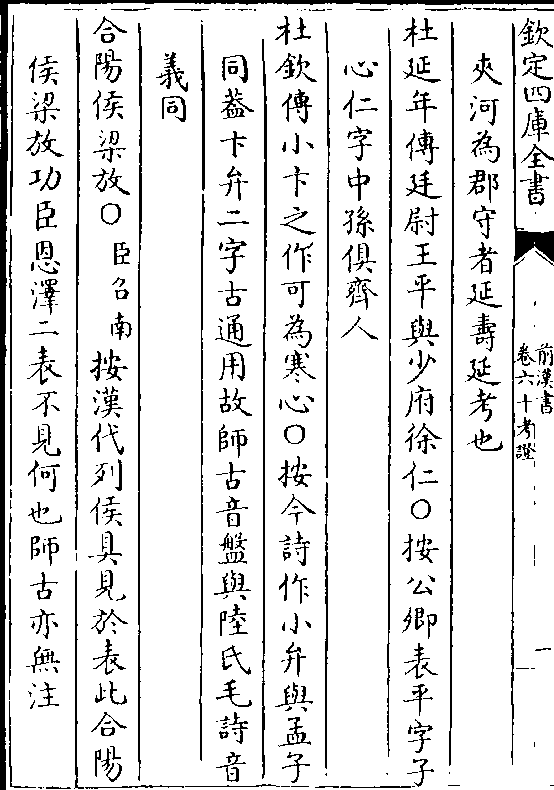 欽定四庫全書
前漢書
卷六十考證
一
夾河為郡守者延壽延考也
杜延年傳廷尉王平與少府徐仁〇按公卿表平字子
心仁字中孫俱齊人
杜欽傳小卞之作可為寒心〇按今詩作小弁與孟子
同葢卞弁二字古通用故師古音盤與陸氏毛詩音
義同
合陽侯梁放〇臣召南按漢代列侯具見於表此合陽
侯梁放功臣恩澤二表不見何也師古亦無注